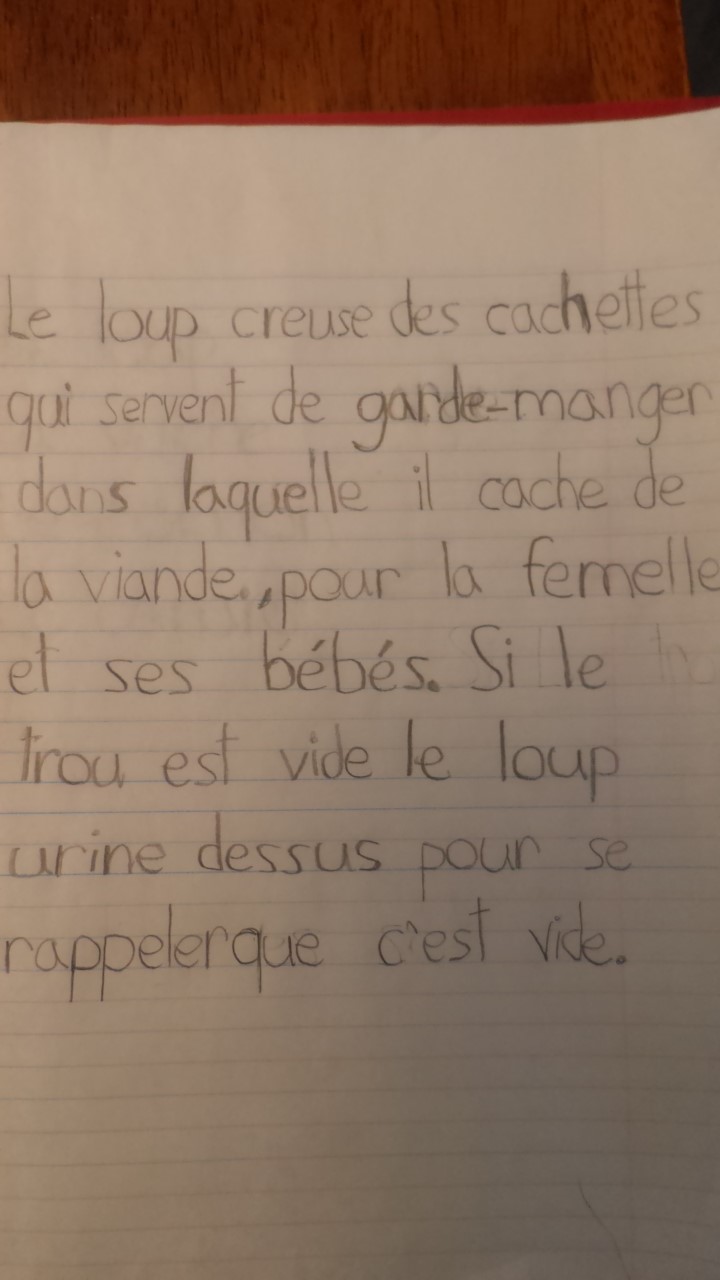 Le loup creuse des cachettes
qui servent de garde-manger
dans laquelle il cache de
la viande, pour la femelle
et ses bébés. Si le
trou est vide le loup
urine dessus pour se
rappeler que c'est vide.